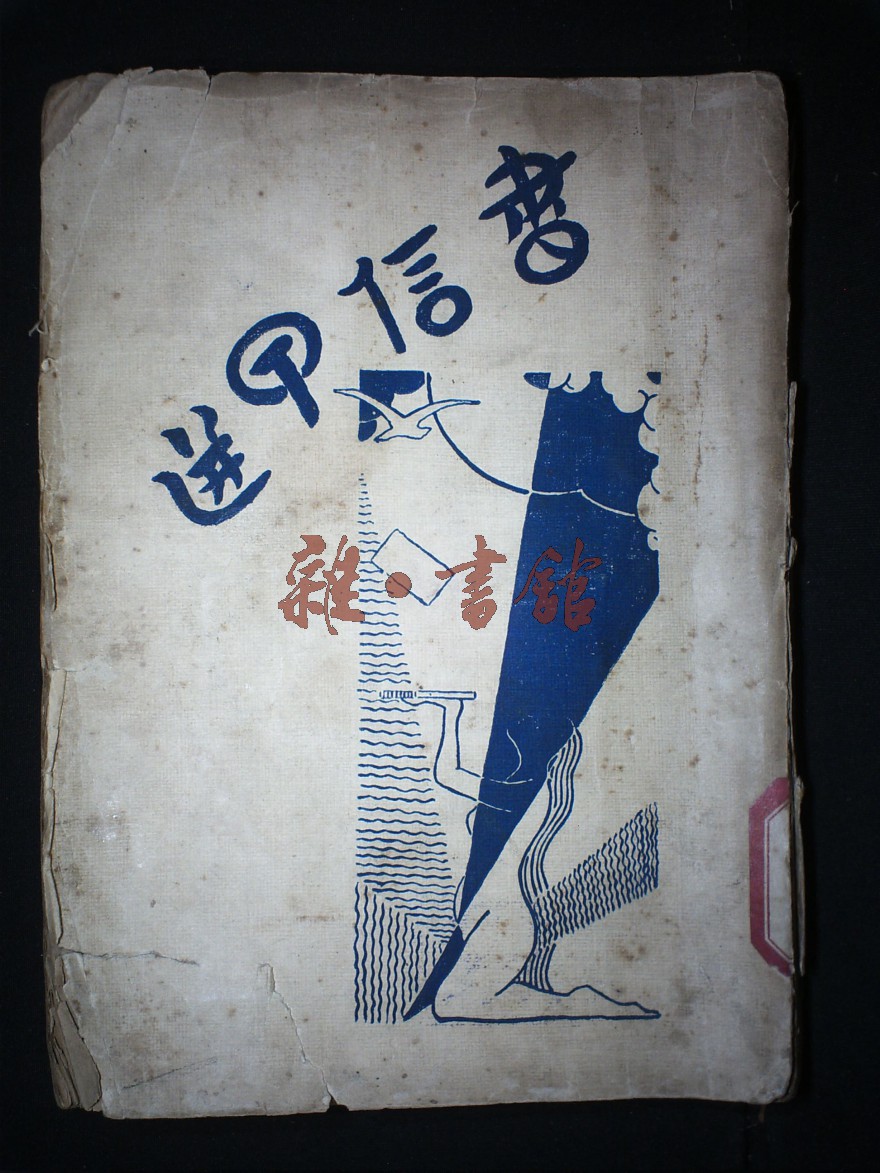 書信甲選
雜·書館